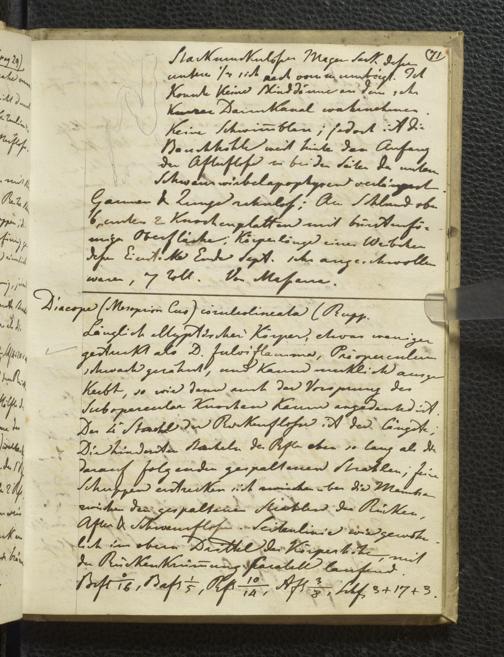 71
Stark muskulöser Magen Sack, dessen
unteres 1/3 sich nach vorn umbiegt. Ich
konnte keine Blinddärme an dem sehr
kurzen Darmkanal wahrnehmen.
Keine Schwimmblase; jedoch ist die
Bauchhöhle weit hinter den Anfang
der Afterflosse zu beiden Seiten der untern
Schwanzwirbelapophysen verlängert.
Gaumen & Zunge zahnlos; Am Schlund ob
6, unten 2 Knochenplatten mit bürstenför-
miger Oberfläche; Körperlänge eines Weibchen
dessen Eierstöcke Ende Sept. sehr angeschwollen
waren, 7 Zoll. Von Massaua.
Diacope (Mesoprion Cuv) coeruleolineata (Rüpp.
Länglich elliptischer Körper, etwas weniger
gedrückt als D. fulviflamma, Präoperculum
schwach gezähnt, und kaum merklich ausge
kerbt, so wie denn auch der Vorsprung des
Suboperculär Knochen kaum angedeutet ist
Der 4 Stachel der Rückenflosse ist der längste;
Die hinderen Stacheln der Rfl. eben so lang als die
darauf folgenden gespaltenen Strahlen; feine
Schuppen erstrecken sich zwischen der Membran
zwischen den gespaltenen Strahlen der Rücken,
After & Schwanzflosse. Seitenlinie wie gewöhn-
lich im obern Drittel der Körperhöhe, mit
der Rückenkrümmung parallel laufend.
Brfl 0/16, Bafl 1/5, Rfl 10/14, Afl 3/8, Schfl 3+17+3.